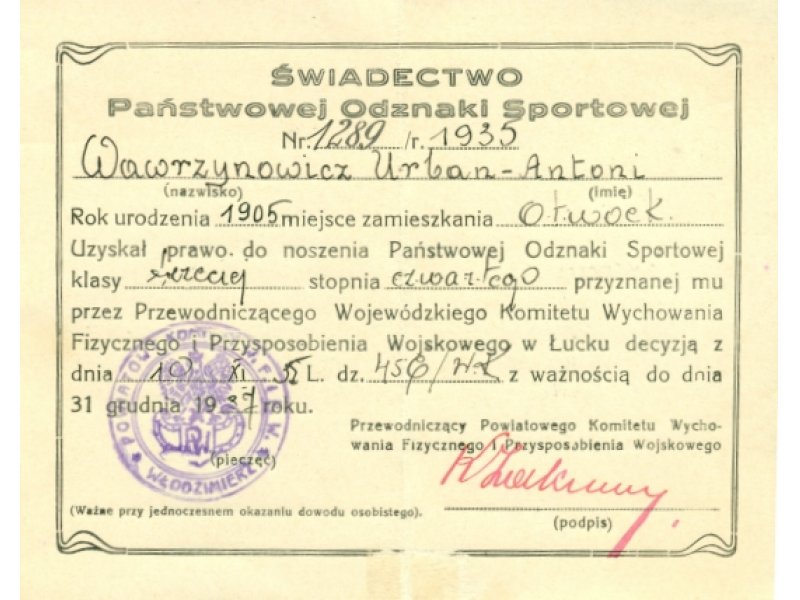 ŚWIADECTWO
Państwowej Odznaki Sportowej
Nr. 1289 /r. 1935
Wawrzynowicz Urban-Antoni
(nazwisko) (imię)
Rok urodzenia 1905 miejsce zamieszkania Otwock.
Uzyskał prawo do noszenia Państwowej Odznaki Sportowej
klasy trzeciej stopnia czwartego przyznanej mu
przez Przewodniczącego Wojewódzkiego Komitetu Wychowania
Fizycznego i Przysposobienia Wojskowego w Łucku decyzją z
dnia 10 XI 35 L. dz. z ważnością do dnia
31 grudnia 1937 roku.
Przewodniczący Powiatowego Komitetu Wycho-
wania Fizycznego i Przysposobienia Wojskowego
POWIATOWY KOMITET W.F. i P.W.
WŁODZIMIERZ
(pieczęć)
(Ważne przy jednoczesnem okazaniu dowodu osobistego).
(podpis)